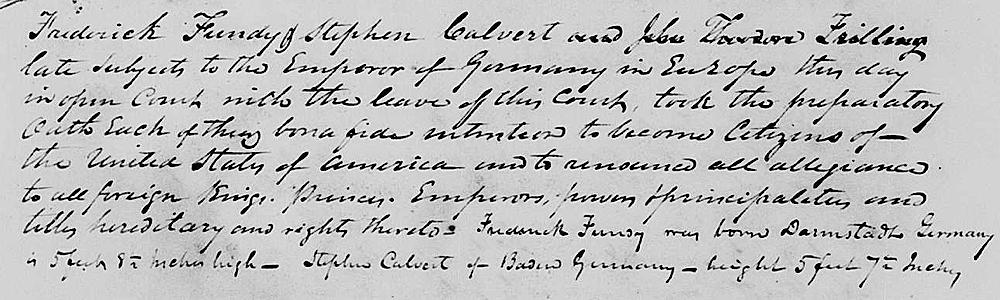 Frederick Fundy & Stephen Calvert and John Theodore Frilling
late subjects to the Emperor of Germany in Europe this day
in open Court with the leave of this Court, took the preparatory
Oath Each of their bona fide intention to become Citizens of —
the United States of America and to renounce all allegiance
to all foreign Kings. Princes. Emperors, powers & principalities and
titles hereditary and rights thereto = Frederick Fundy was born Darmstadt Germany
is 5 feet 8½ inches high — Stephen Calvert of Baden Germany — height 5 feet 7½ Inches